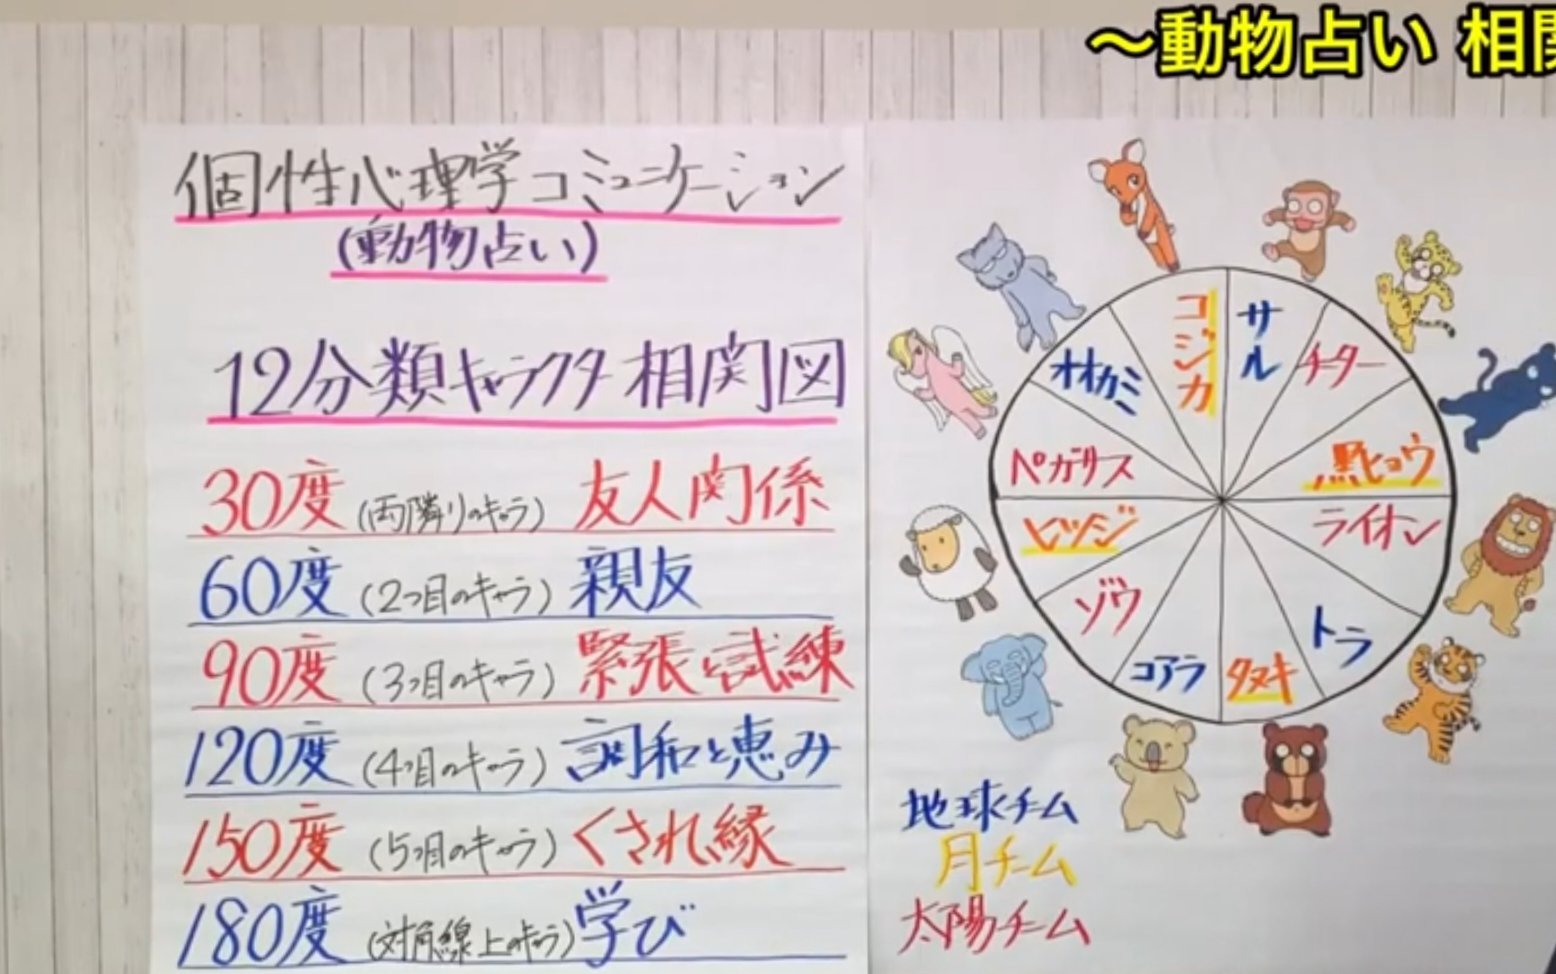 〜動物占い 相関
個性心理学コミュニケーション
(動物占い)
12分類キャラクタ相関図
30度 (両隣りのキャラ) 友人関係
60度 (2つ目のキャラ) 親友
90度 (3つ目のキャラ) 緊張と試練
120度 (4つ目のキャラ) 調和と恵み
150度 (5つ目のキャラ) くされ縁
180度 (対角線上のキャラ) 学び
コジカ
サル
チーター
黒ヒョウ
ライオン
トラ
タヌキ
コアラ
ゾウ
ヒツジ
ペガサス
オオカミ
地球チーム
月チーム
太陽チーム